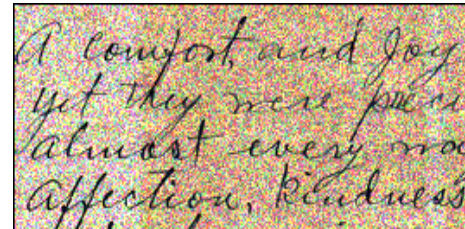 A comfort, and Joy
yet they were
almost every
affection, kindness